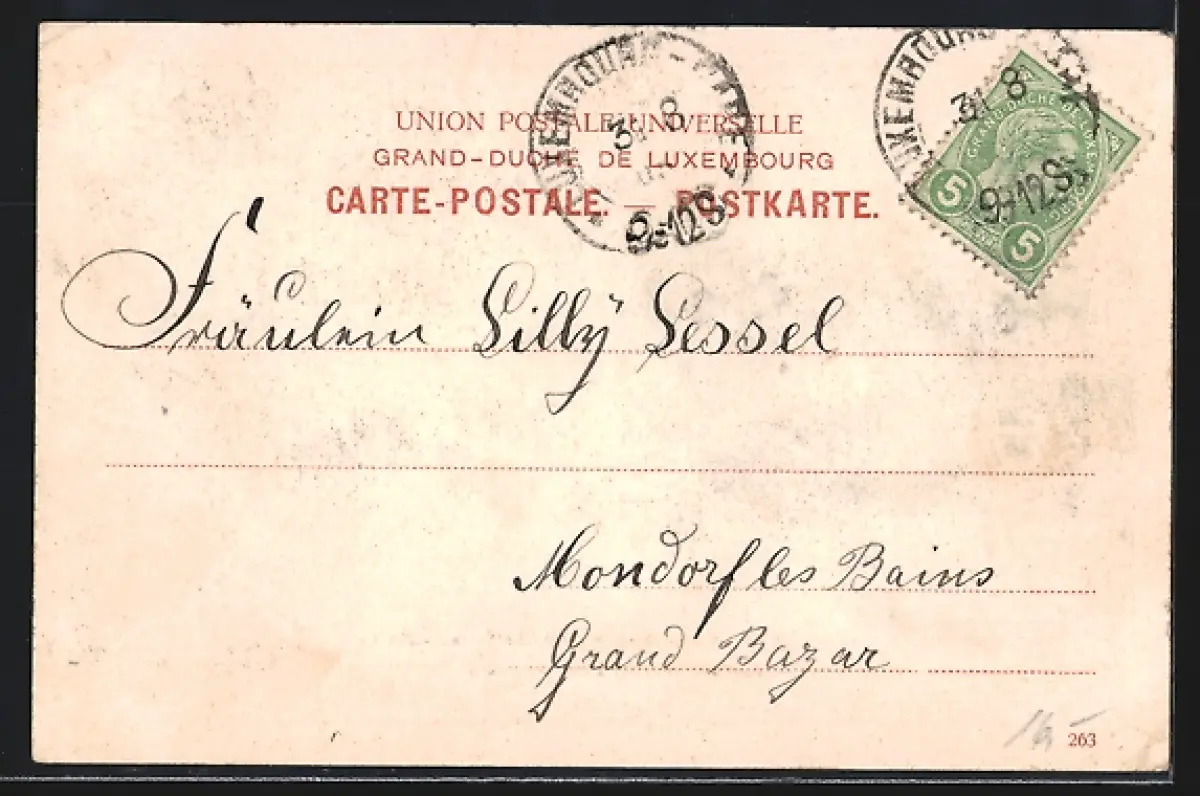 UNION POSTALE UNIVERSELLE
GRAND-DUCHÉ DE LUXEMBOURG
CARTE-POSTALE. — POSTKARTE.
LUXEMBOURG-GARE
31 8
9-12S
LUXEMBOURG
31 8
9-12S
GRAND DUCHÉ DE LUXEMBOURG
5
5
Fräulein Lilly Lessel
Mondorf les Bains
Grand Bazar
263